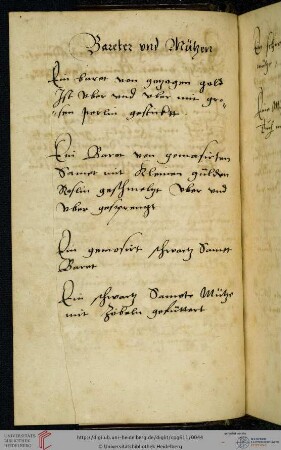 Bareter und Mützen
Ein baret von gezogen gold
Ist uber und uber mit gro-
sen perlin gestickt
Ein Baret von gemosirten
Samet mit kleinen gulden
Roslin geschmeltzt uber und
uber gesprengt
Ein gemosirt schwartz Samet
Baret
Ein schwartz Samete Mütze
mit zobeln gefuttert
UNIVERSITÄTS-
BIBLIOTHEK
HEIDELBERG
© Universitätsbibliothek Heidelberg